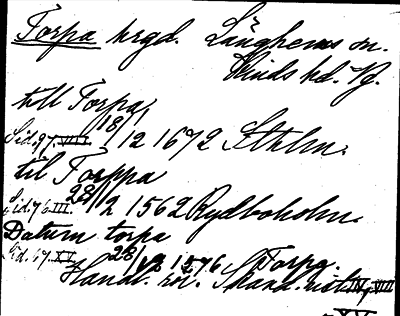 Torpa hrgd. Länghems sn.
Kinds hd. Vg.
till Torpa
Sid. 97. VIII. 18/12 1672 Sthlm.
til Torppa
Sid. 76. III. 28/2 1562 Rydboholm.
Datum torpa
Sid. 67. XV. 28/12 1576 Torpa.
Handl. rör. Skand. hist.